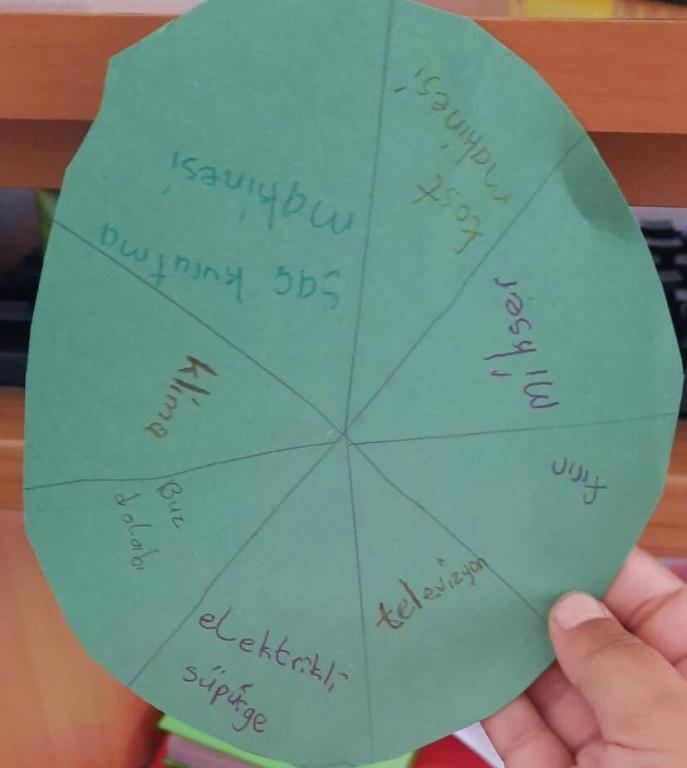 tost
makinesi
mikser
fırın
televizyon
elektrikli
süpürge
Buz
dolabı
klima
saç kurutma
makinesi